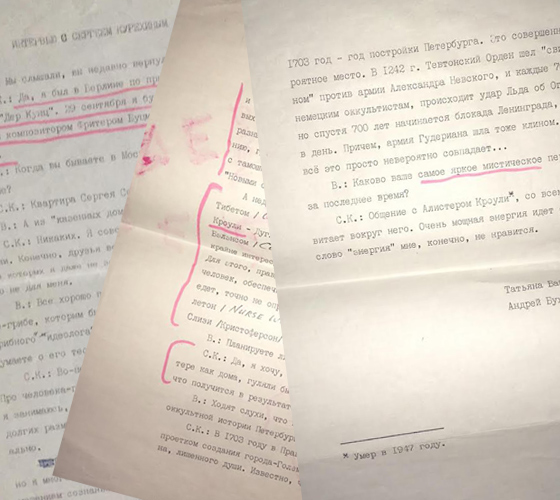 ИНТЕРВЬЮ С СЕРГЕЕМ КУРЕХИНЫМ
Вы слышали, вы недавно
К.: Да, я был в Берлине по пр
"Дер Кущ". 29 сентября я бу
композитором Фритером Буш
Когда вы бываете в Мос
С.К.: Квартира Сергея Со
В.: А из "казенных дом
С.К.: Никаких. Я сов
Конечно, друзья
не для меня.
В.: Все хорошо
грибе, которым бы
"идеолога"
думаете о его тес
С.К.: Во-
Про человека-г
я занимаюсь,
долгих разм
ально.
но я мног
сознание
и
вых
разна
ние, г
с тамош
"новыми
А нед
Тибетом /
Кроули -
крайне интерес
Для этого, пра
человек, обеспеч
едет, точно не оп
летом / NURSE
Слизи /Кристоферсон/
В.: Планируете ли
С.К.: Да, я хочу,
тере как дома, гуляли бы
что получится в результат
В.: Ходят слухи, что
оккультной истории Петербур
С.К.: В 1703 году в Пра
проектом создания города-Голе
на, лишенного души. Известно,
1703 год - год постройки Петербурга. Это совершенн
роятное место. В 1242 г. Тевтонский Орден шел "сви
ном" против армии Александра Невского, и каждые 7
немецким оккультистам, происходит удар Льда об Ог
но спустя 700 лет начинается блокада Ленинграда,
в день. Причем, армия Гудериана шла тоже клином.
всё это просто невероятно совпадает...
В.: Каково ваше самое яркое мистическое пе
за последнее время?
С.К.: Общение с Алистером Кроули*, со все
витает вокруг него. Очень мощная энергия идет
слово "энергия" мне, конечно, не нравится.
Татьяна Ва
Андрей Бух
* Умер в 1947 году.